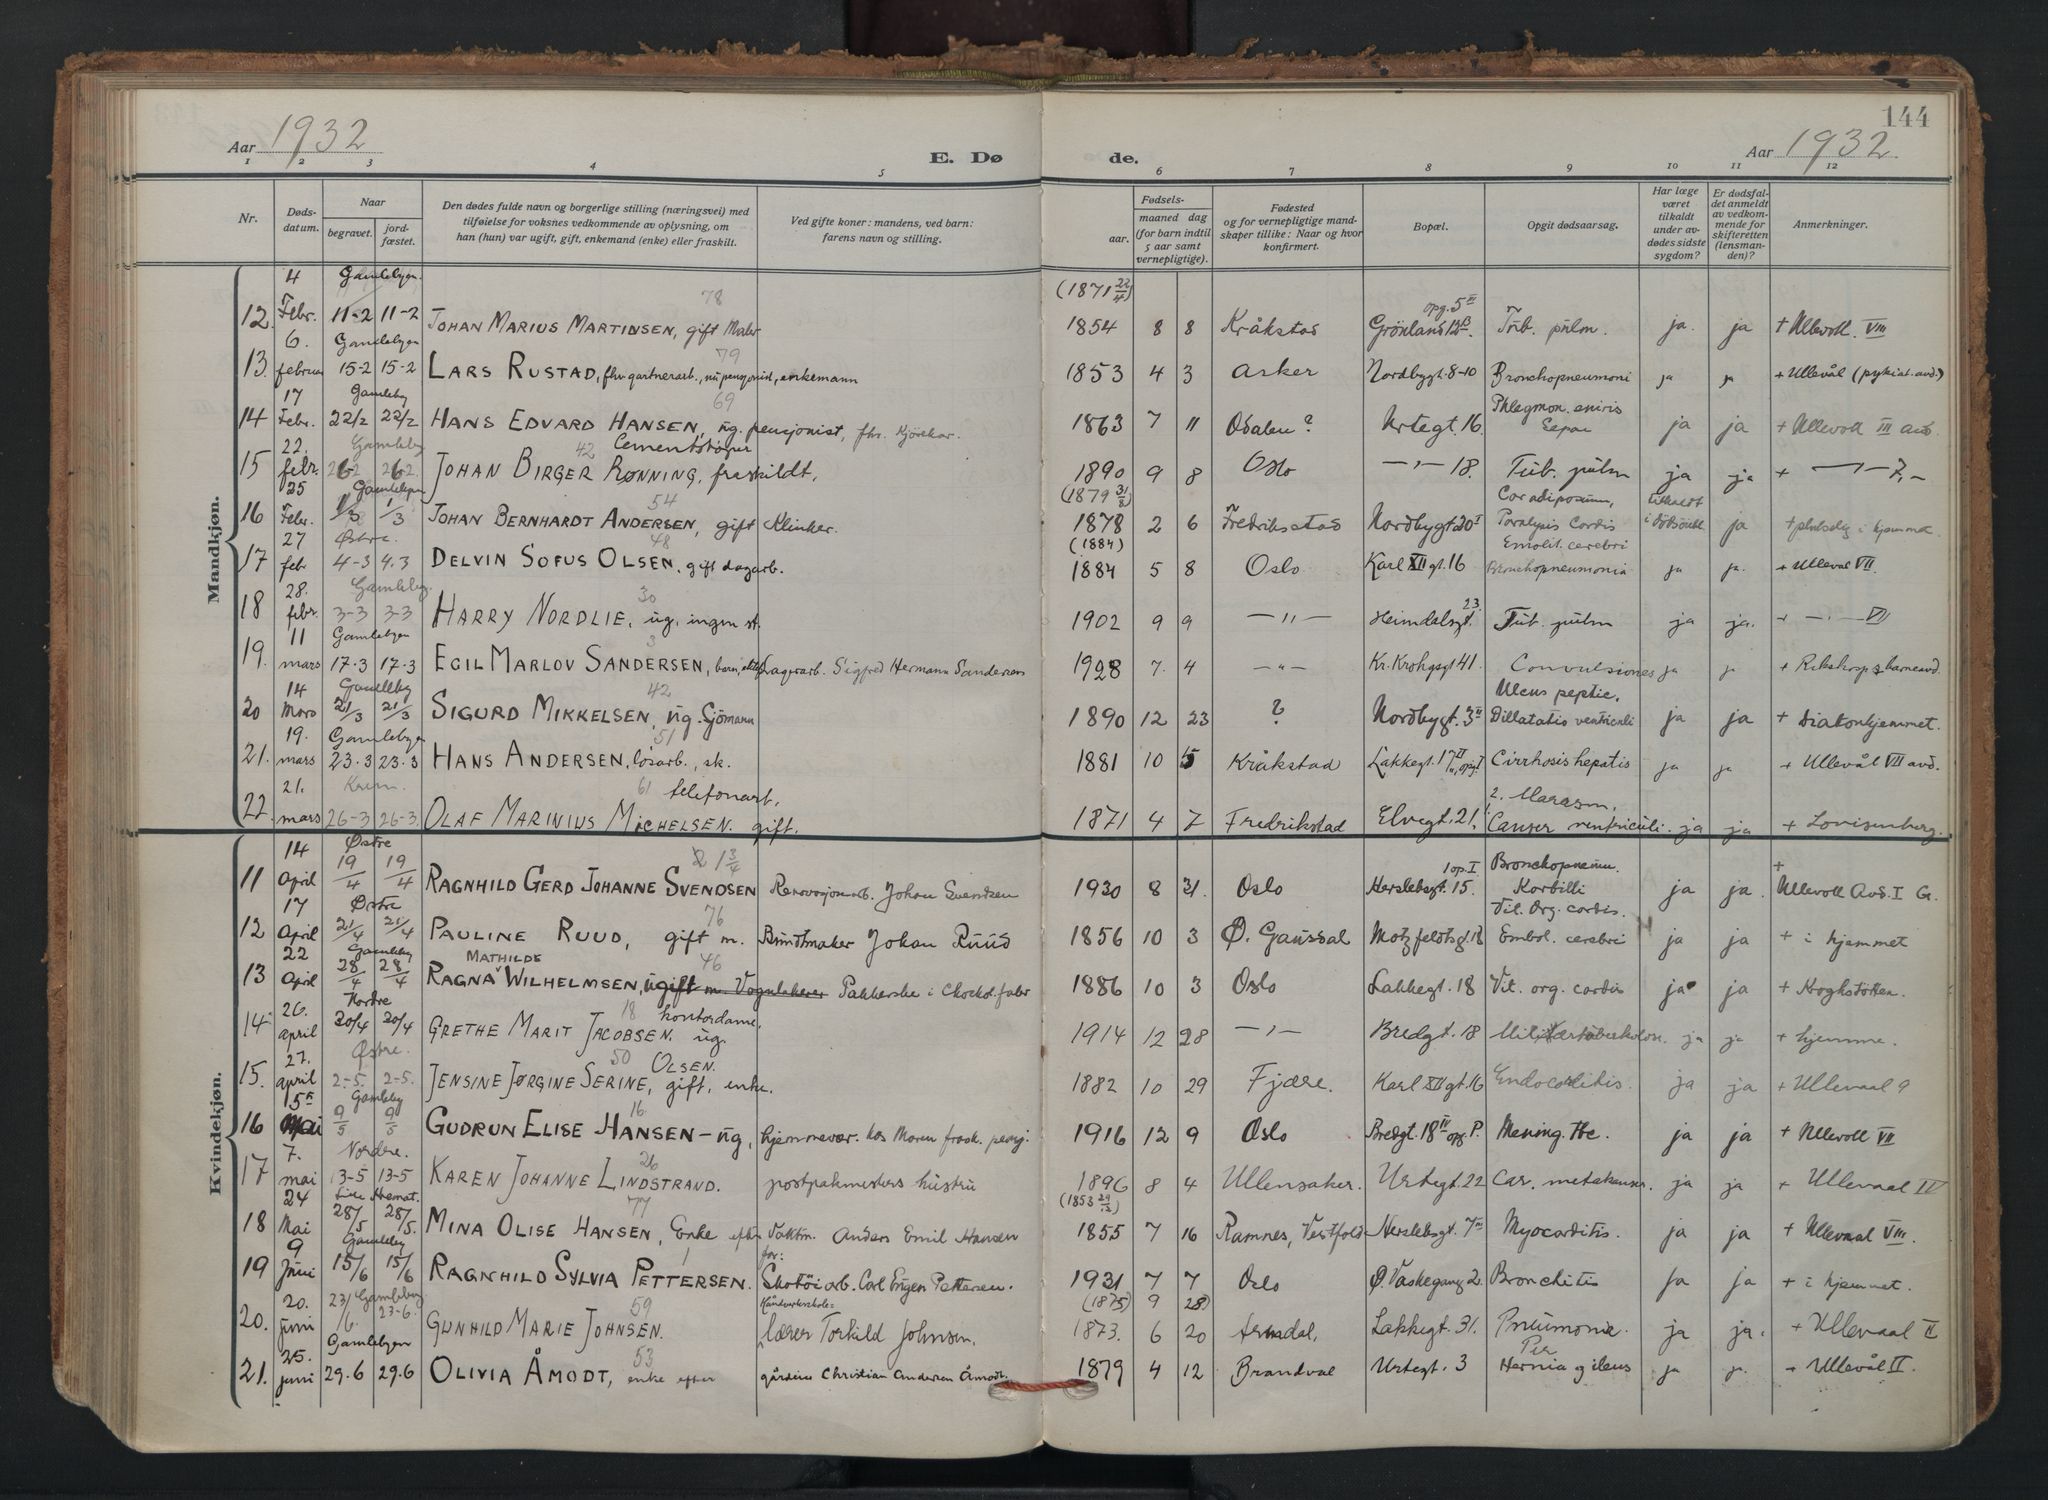 144
Aar 1932
E. Dø
de.
Aar 1932.
1 2 3 4 5 6 7 8 9 10 11 12
Nr.
Døds-
datum.
Naar
begravet.
jord-
fæstet.
Den dødes fulde navn og borgerlige stilling (næringsvei) med
tilføielse for voksnes vedkommende av oplysning, om
han (hun) var ugift, gift, enkemand (enke) eller fraskilt.
Ved gifte koner: mandens, ved barn:
farens navn og stilling.
Fødsels-
aar.
maaned dag
(for barn indtil
5 aar samt
vernepligtige).
Fødested
og for vernepligtige mand-
skaper tillike: Naar og hvor
konfirmert.
Bopæl.
Opgit dødsaarsag.
Har læge
været
tilkaldt
under av-
dødes sidste
sygdom?
Er dødsfal-
det anmeldt
av vedkom-
mende for
skifteretten
(lensman-
den)?
Anmerkninger.
Mandkjøn.
4 Gamlebyen. 78 (1871 22/4) opg. 5 II
12. Febr. 11-2 11-2 JOHAN MARIUS MARTINSEN, gift Maler 1854 8 8 Kråkstad Grönland 12 B. Tub. pulm. ja. ja + Ullevoll. VIII
6. Gamlebyen 79
13. februar 15-2 15-2 LARS RUSTAD, fhv. gartnerarb., nu pensjonist, enkemann 1853 4 3 Asker Nordbygt. 8-10 Bronchopneumoni ja ja + Ullevål (psykiat. avd.)
17 Gamleby 69 Phlegmon.
14 Febr. 22/2 22/2 HANS EDVARD HANSEN, ug. pensjonist, fhv. Kjörekar. 1863 7 11 Odalen? Urtegt. 16. ja ja + Ullevoll III avd.
22. Gamleby 42 Cementstöper
15 febr. 26-2 26-2 JOHAN BIRGER RØNNING, fraskildt, 1890 9 8 Oslo —„— 18. Tub. pulm ja ja + —„—
25 Gamlebyen 54 (1879 31/8) Cor adiposum,
16 Febr. 1/3 1/3 JOHAN BERNHARDT ANDERSEN, gift Klinker. 1878 2 6 Fredrikstad Nordbygt. 20 I Paralysis Cordis ja + plutselig i hjemmet
27 Østre. 48 (1884) Emolit. cerebri
17. febr 4-3 4.3 DELVIN SOFUS OLSEN, gift dagarb. 1884 5 8 Oslo Karl XII gt. 16 Bronchopneumonia ja ja. + Ulleval VII.
28. Gamleby. 30 23.
18 febr. 3-3 3-3 HARRY NORDLIE, ug. ingen st. 1902 9 9 —„— Heimdalsgt. Tub. pulm ja ja. + —„— VII
11 Gamlebyen 3
19. mars 17.3 17.3 EGIL MARLOV SANDERSEN, barn, Lagerarb. Sigfred Hermann Sandersen 1928 7. 4 —„— Kr. Krohgsgt 41. Convulsiones ja ja + Rikshosp. barneavd.
14 Gamleby 42 Ulcus peptic,
20 Mars 21/3 21/3 SIGURD MIKKELSEN, ug. Sjömann 1890 12 23 ? Nordbygt. 3 II Dillatatio ventriculi ja ja + Diakonhjemmet.
19. Gamlebyen 51
21. mars 23.3 23.3 HANS ANDERSEN, lösarb., sk. 1881 10 5 Kråkstad Lakkegt. 17 II Cirrhosis hepatis ja ja + Ullevål VII avd.
21. Krem. 61 telefonarb. 2. Marasm,
22. mars 26-3 26-3. OLAF MARINIUS MICHELSEN. gift. 1871 4 7 Fredrikstad Elvegt. 21. Cancer ventriculi. ja ja + Lovisenberg.
Kvindekjøn.
14 Østre 1 3/4 1 op. I Bronchopneum.
11 April 19/4 19/4 RAGNHILD GERD JOHANNE SVENDSEN Renovasjonarb. Johan Svendsen 1930 8 31. Oslo Herslebsgt. 15. Morbilli ja ja. + Ullevoll Avd. I G.
17 Østre 76 Vit. Org. cordis.
12 April 21/4 21/4 PAULINE RUUD, gift m. Buntmaker Johan Ruud 1856 10 3 Ø. Gausdal Motzfeldtsgt. 18 Embol. cerebri ja ja + i hjemmet
22 Gamleby MATHILDE 46
13 April 28/4 28/4 RAGNA WILHELMSEN, ugift m. Pakkerske i Chokol. fabr 1886 10 3 Oslo Lakkegt. 18 Vit. org. cordis ja ja + Kroghstötten.
26. Nordre 18 kontordame,
14 april 30/4 30/4 GRETHE MARIT JACOBSEN. ug. 1914 12 28 —„— Bredgt. 18 Miliærtuberkulose. ja ja + hjemme.
27. Østre. 50 OLSEN.
15. april 2-5. 2-5. JENSINE JØRGINE SERINE, gift, enke. 1882 10 29 Fjære. Karl XII gt. 16 Endocarditis. ja ja + Ullevaal 9
5. Gamleby 16.
16 Mai 9/5 9/5 GUDRUN ELISE HANSEN – ug, hjemmevær. hos Moren frask. pensj. 1916 12 9 Oslo Bredgt. 18 II opg. P. Mening. tbc. ja ja + Ullevoll VII
7. Nordre. 26
17 mai 13-5 13-5 KAREN JOHANNE LINDSTRAND. postpakmesters hustru 1896 8 4 Ullensaker. Urtegt. 22 Car. ja ja + Ullevaal IV
24 77 (1853 29/3)
18 Mai 28/5 28/5 MINA OLISE HANSEN, Enke efter Vaktm. Anders Emil Hansen 1855 7 16 Ramnes, Vestfold Herslebsgt. 7 III Myocarditis. ja ja + Ullevaal VIII.
9 Gamleby 1 for:
19 Juni 15/6 15/6 RAGNHILD SYLVIA PETTERSEN. Skotöiarb. Carl Eugen Pettersen. 1931 7 7 Oslo Ø. Vaskegang 2. Bronchitis ja ja + i hjemmet.
20. Gamleby 59 Håndverksskole= (1875) 9 28)
20. juni 23/6. 23-6. GUNHILD MARIE JOHNSEN. lærer Torkild Johnsen. 1873. 6 20 Arendal, Lakkegt. 31. Pneumonie. ja ja. + Ullevaal II
25. Gamlebyen 53
21. juni 29.6 29.6 OLIVIA ÅMODT, enke efter gårdeier Christian Andersen Åmodt. 1879 4 12 Brandval Urtegt. 3 Hernia ja ja. + Ullevål II.